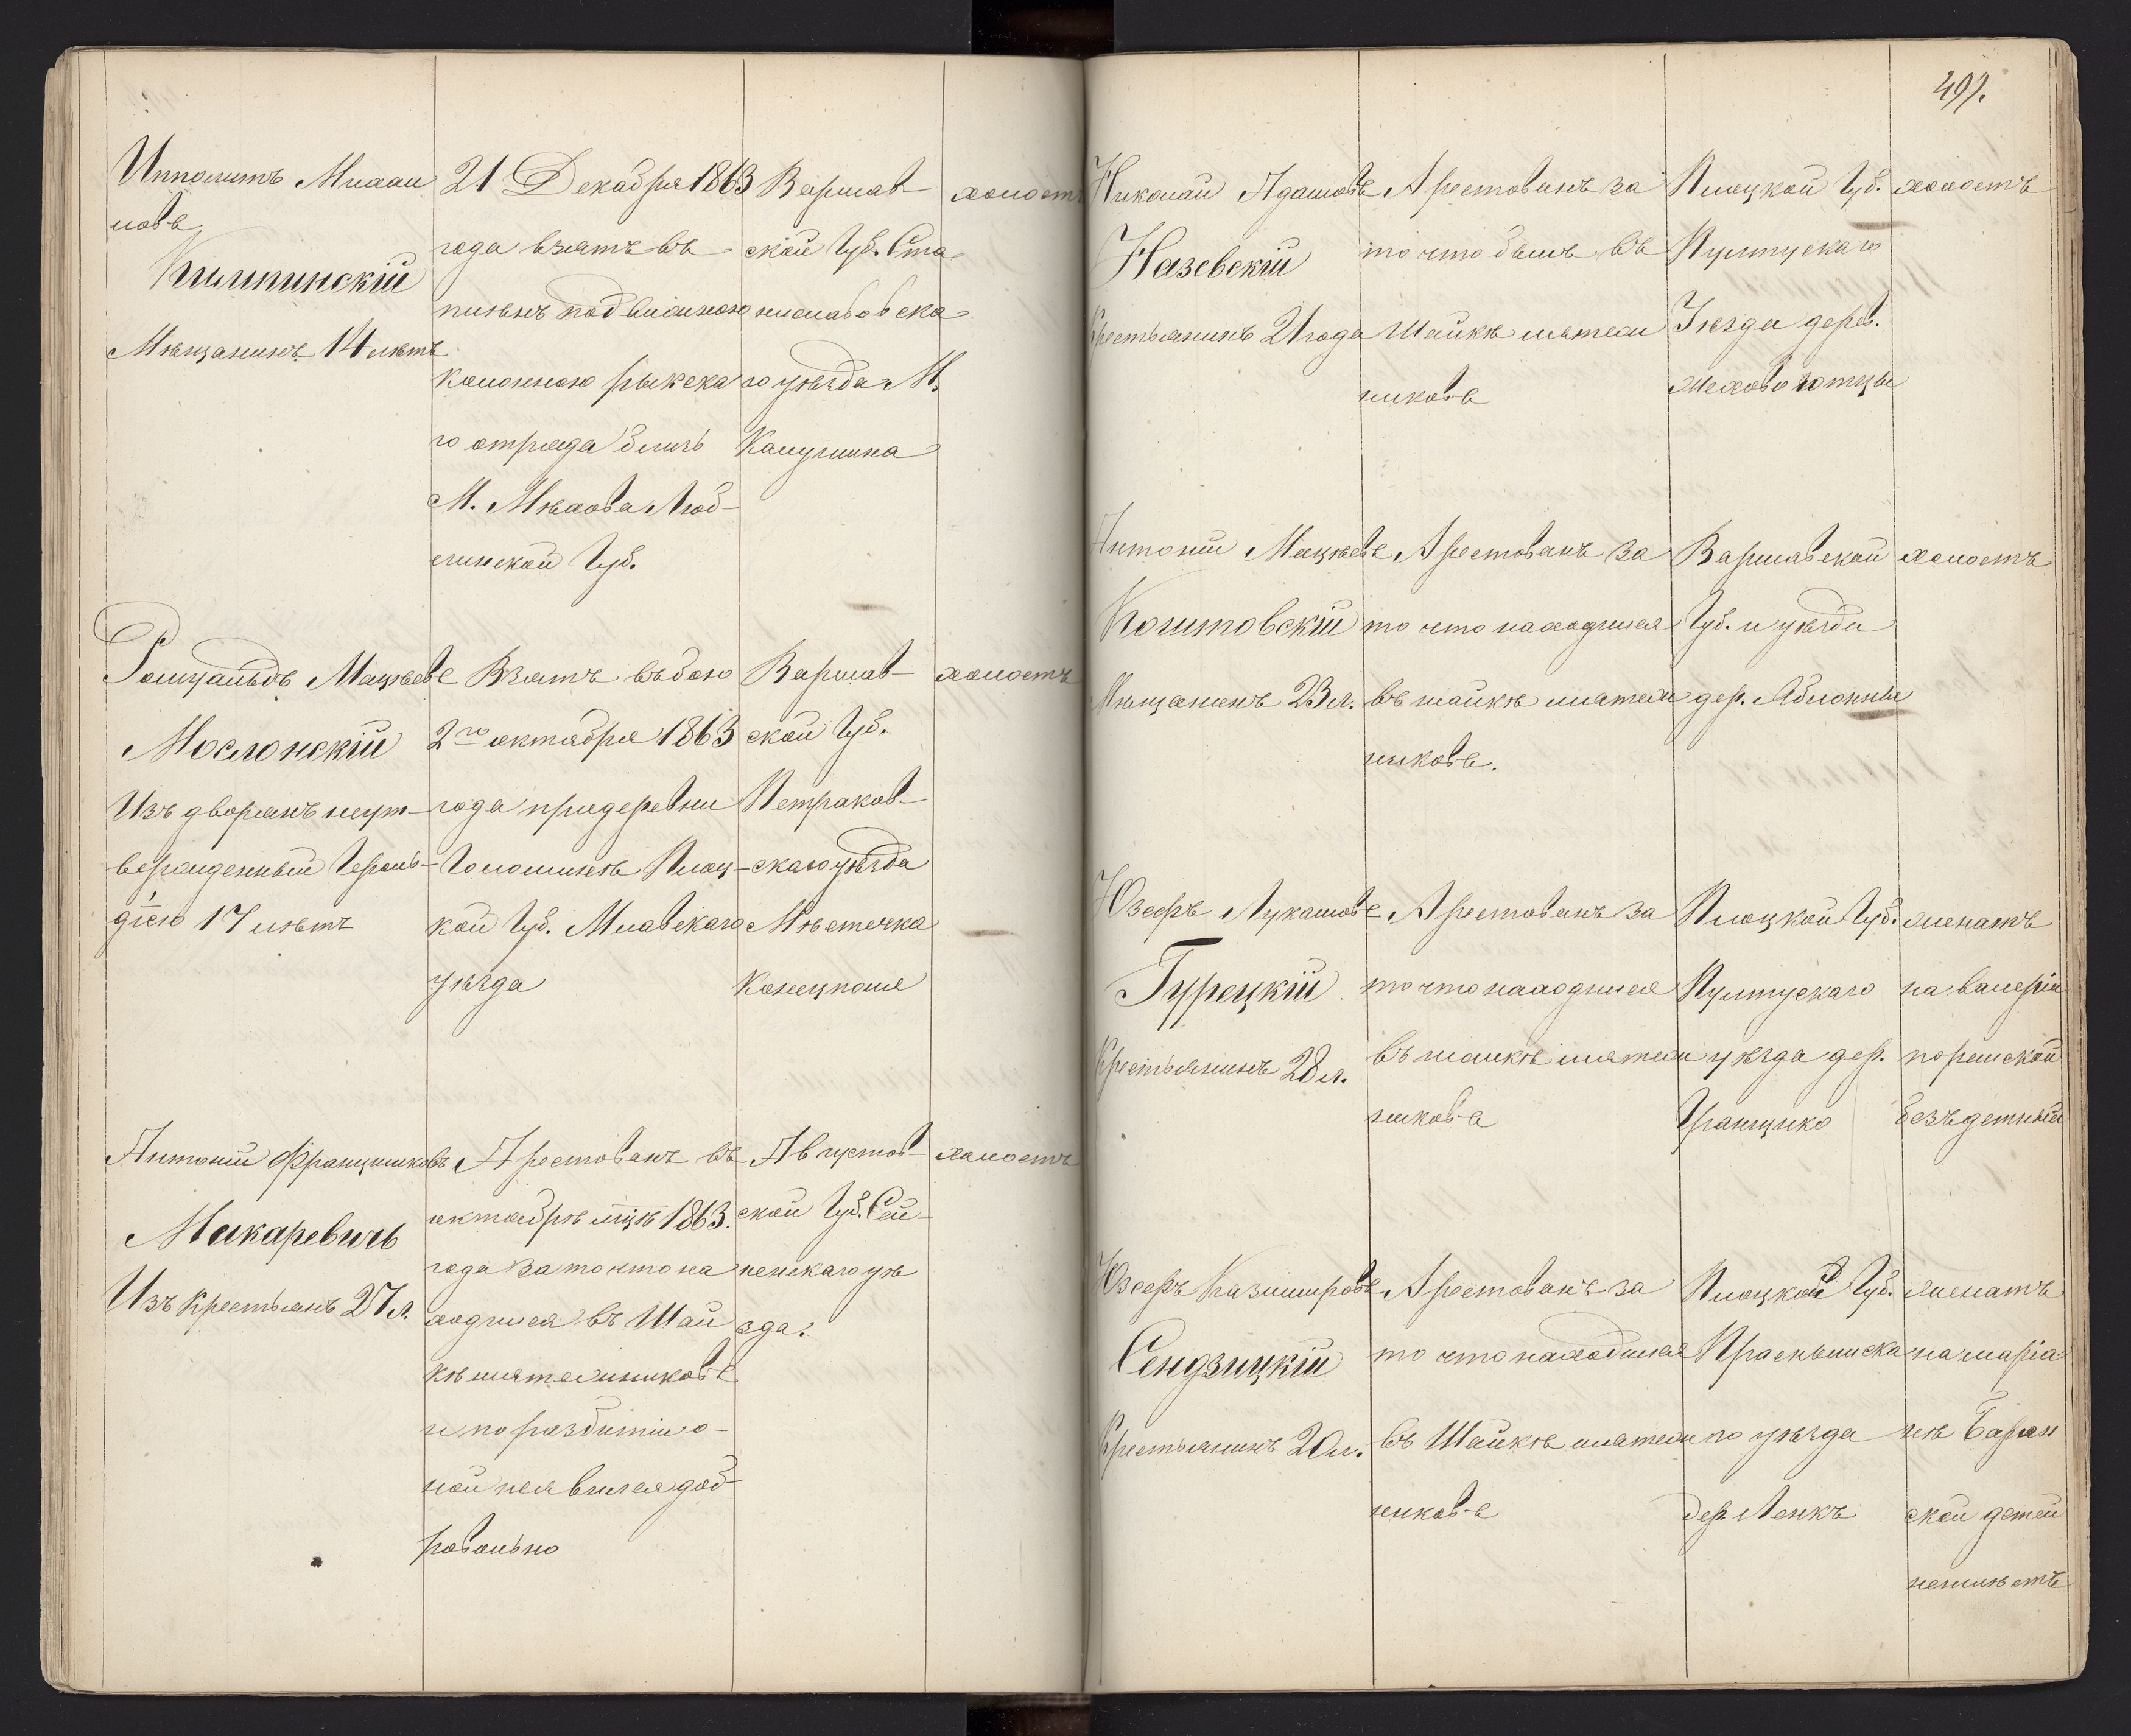 Ипполитъ Михаи
ловъ
Килпинскій
Мѣщанинъ 14 лѣтъ
21 Декабря 1863
года взятъ въ
плѣнъ подвижною
колонною
го отряда близь
М. Мѣхова Люб-
линской Губ.
Варшав-
ской Губ. Ста
ниславовска
го уѣзда М.
Калушина
холостъ
Ромуальдъ Мацѣевъ
Мослонскій
Изъ дворянъ неут-
вержденный Героль-
діею 17 лѣтъ
Взятъ въ бою
2го октября 1863
года при деревни
Плоц-
кой Губ. Млавскаго
уѣзда
Варшав-
ской Губ.
Петраков-
скаго уѣзда
Мѣстечка
Конецполя
холостъ
Антоній Францишковъ
Макаревичь
Изъ крестьянъ 27 л.
Арестованъ въ
октябрѣ мцѣ 1863.
года за то что на
ходился въ Шай
кѣ мятежниковъ
и по разбитіи о-
ной неявился доб-
ровольно
Августов-
ской Губ. Сей-
ненскаго уѣ
зда.
холостъ
497.
Николай Адамовъ
Назевскій
Крестьянинъ 21 года
Арестованъ за
то что былъ въ
Шайкѣ мятеж
никовъ
Плоцкой Губ.
Пултускаго
Уѣзда дерев.
холостъ
Антоній Мацѣевъ
Коштовскій
Мѣщанинъ 23 л.
Арестованъ за
то что находился
въ шайкѣ мятеж
никовъ.
Варшавской
Губ. и уѣзда
дер. Яблонны
холостъ
Юзефъ Лукашовъ
Гурецкій
Крестьянинъ 28 л.
Арестованъ за
то что находился
въ шайкѣ мятеж
никовъ
Плоцкой Губ.
Пултускаго
уѣзда дер.
женатъ
на валеріи
безъдетный
Юзефъ Казимировъ
Сендзицкій
Крестьянинъ 20 л.
Арестованъ за
то что находился
въ Шайкѣ мятеж
никовъ
Плоцкой Губ.
Праснышска
го уѣзда
дер. Ленкъ
женатъ
на маріа
нѣ Баран
ской детей
неимѣетъ